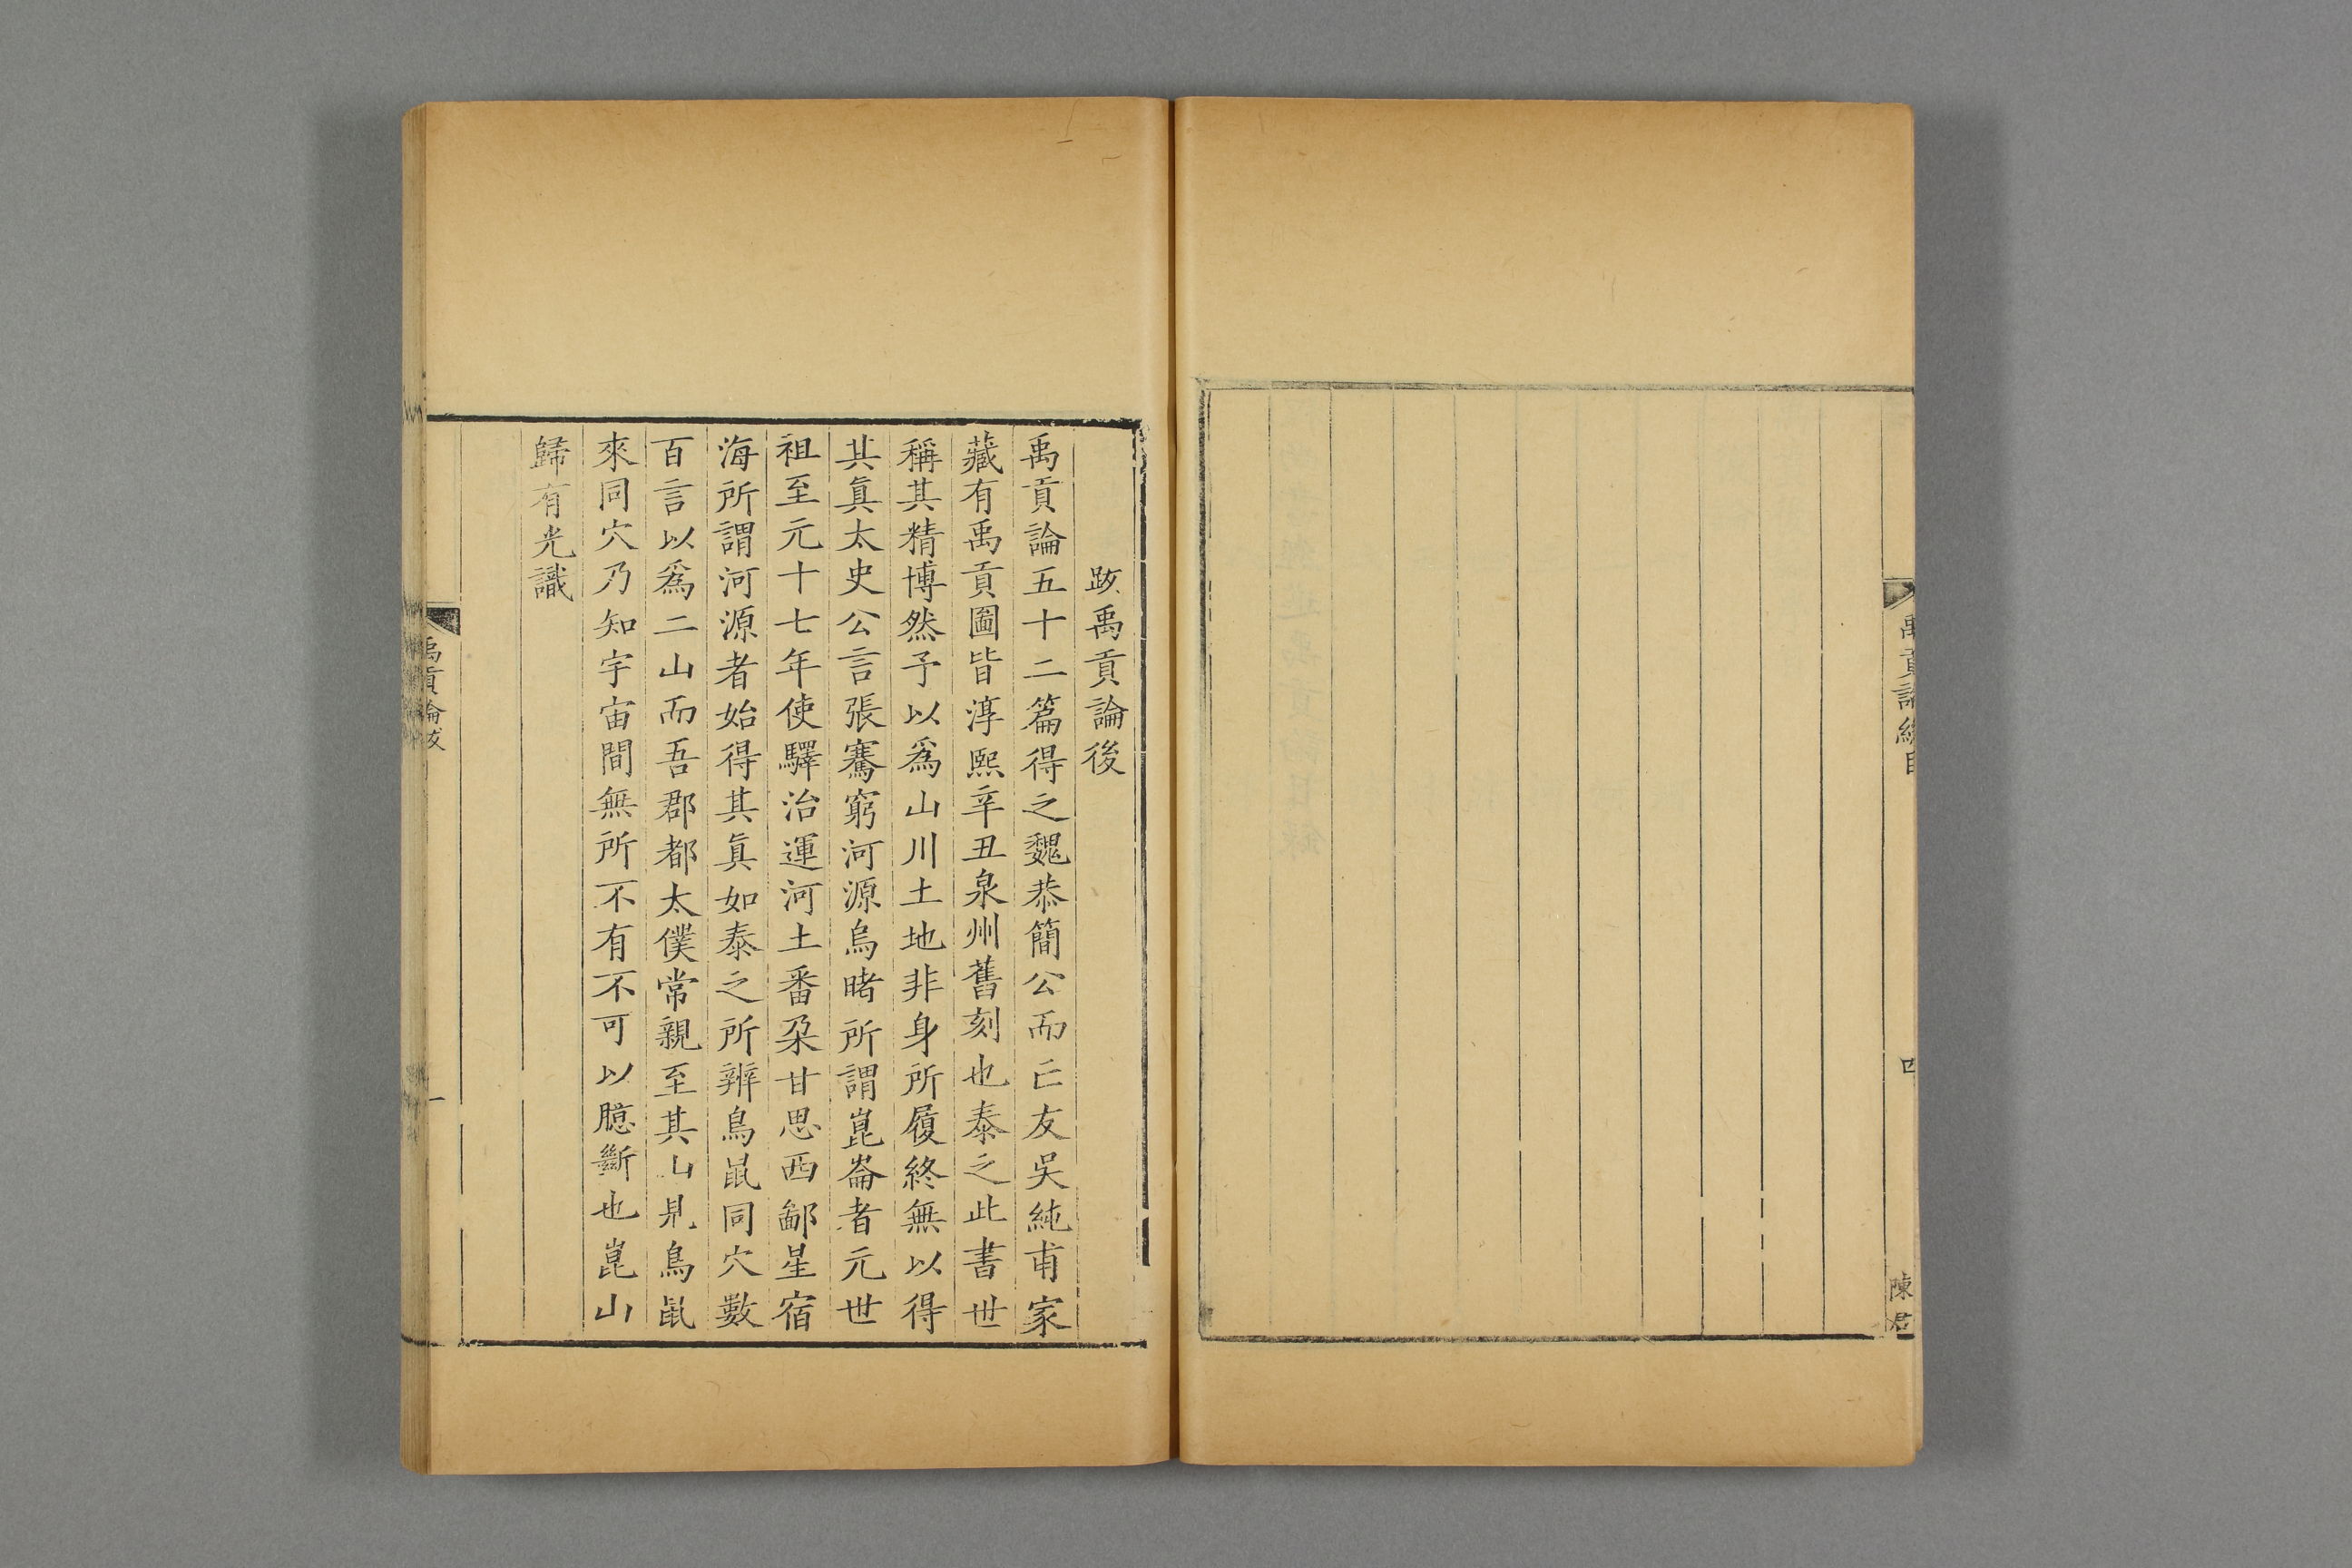 禹貢論總目
四
陳君
跋禹貢論後
禹貢論五十二篇得之魏恭簡公而亡友吳純甫家
藏有禹貢圖皆淳熙辛丑泉州舊刻也泰之此書世
稱其精博然予以爲山川土地非身所履終無以得
其眞太史公言張騫窮河源烏睹所謂崑崙者元世
祖至元十七年使驛治運河土番朶甘思西鄙星宿
海所謂河源者始得其眞如泰之所辨鳥鼠同穴數
百言以爲二山而吾郡都太僕常親至其山見鳥鼠
來同穴乃知宇宙間無所不有不可以臆斷也崑山
歸有光識
禹貢論跋
一